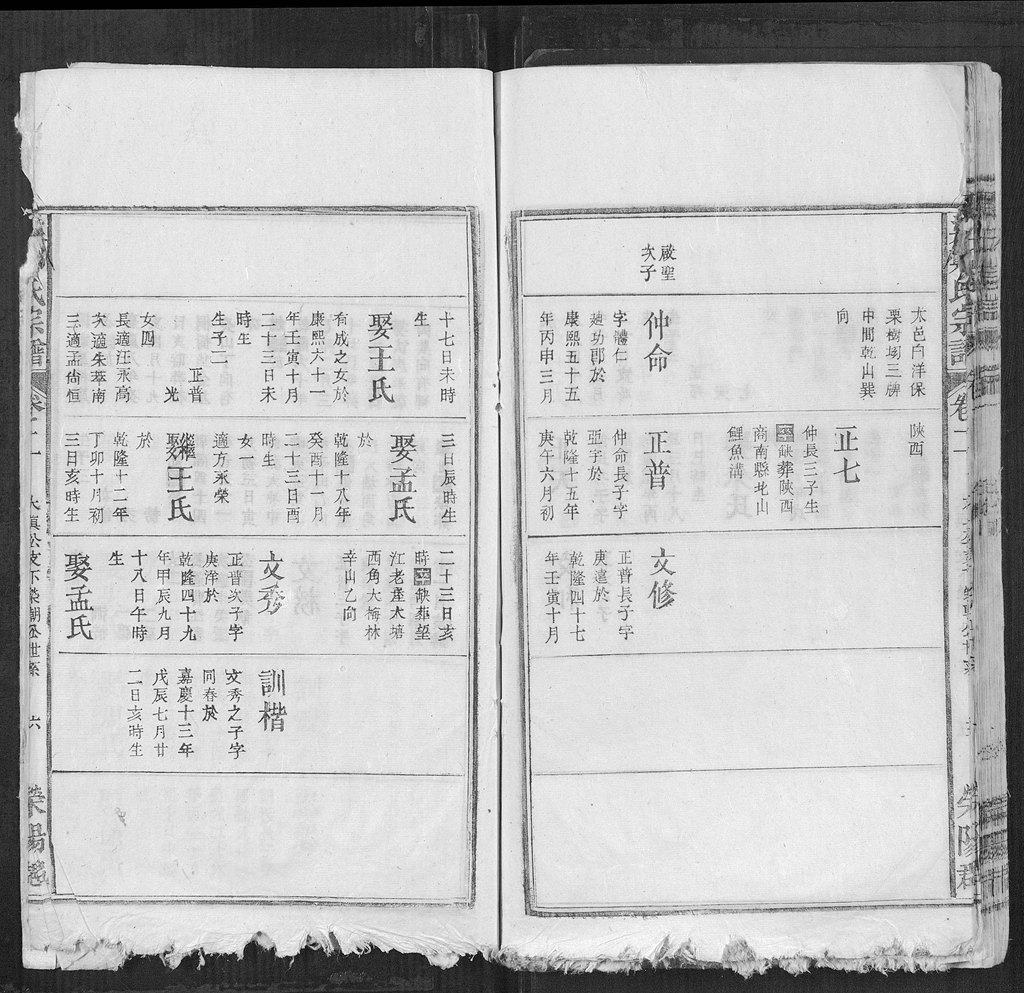 太邑白洋保
栗樹塝三牌
中間乾山巽
向
陝西
正七
仲長三子生
卒缺葬陝西
商南縣北山
鯉魚溝
啟聖
次子
仲命
字體仁
廸功郎於
康熙五十五
年丙申三月
正普
仲命長子字
亞宇於
乾隆十五年
庚午六月初
文修
正普長子字
庚遠於
乾隆四十七
年壬寅十月
十七日未時
生
娶王氏
有成之女於
康熙六十一
年壬寅十月
二十三日未
時生
生子二
正普
光
女四
長適汪永高
次適朱萃南
三適孟尚恒
三日辰時生
娶孟氏
於
乾隆十八年
癸酉十一月
二十三日酉
時生
女一
適方永榮
繼娶王氏
於
乾隆十二年
丁卯十月初
三日亥時生
二十三日亥
時卒缺葬望
江老產大塘
西角大梅林
辛山乙向
文秀
正普次子字
庚洋於
乾隆四十九
年甲辰九月
十八日午時
生
娶孟氏
訓楷
文秀之子字
同春於
嘉慶十三年
戊辰七月廿
二日亥時生
氏宗譜
六